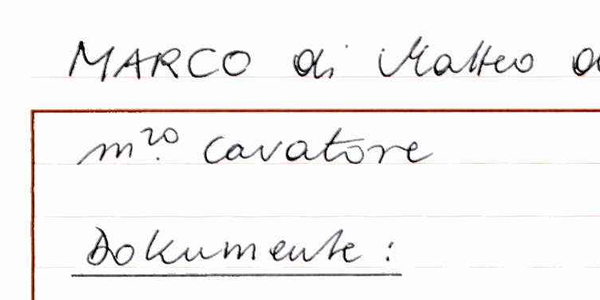 MARCO di Matteo
m.ro cavatore
Dokumente: